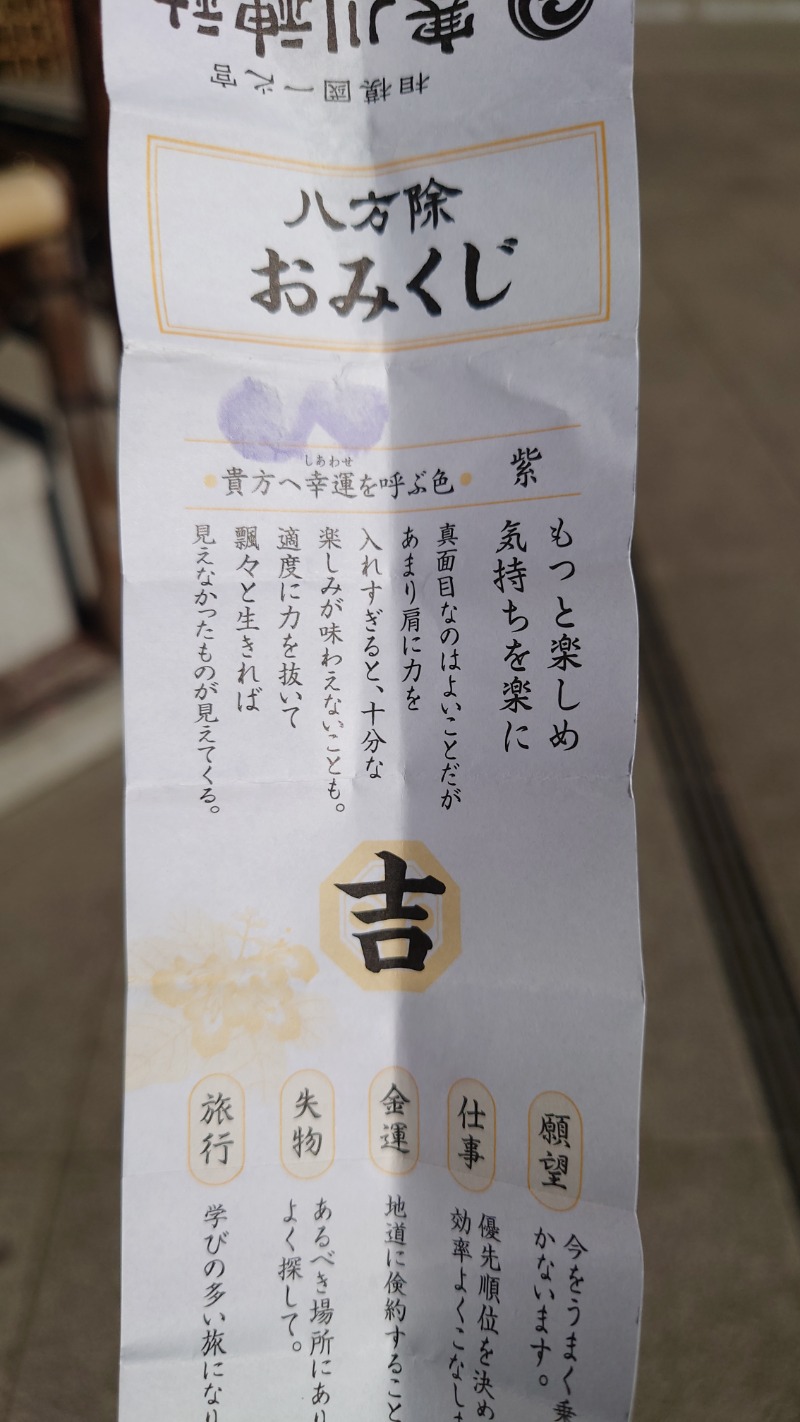 寒川神社
相模國一之宮
八方除
おみくじ
紫
しあわせ
貴方へ幸運を呼ぶ色
もっと楽しめ
気持ちを楽に
真面目なのはよいことだが
あまり肩に力を
入れすぎると、十分な
楽しみが味わえないことも。
適度に力を抜いて
飄々と生きれば
見えなかったものが見えてくる。
吉
願望
今をうまく乗
かないます。
仕事
優先順位を決め
効率よくこなしま
金運
地道に倹約すること
失物
あるべき場所にあり
よく探して。
旅行
学びの多い旅になり